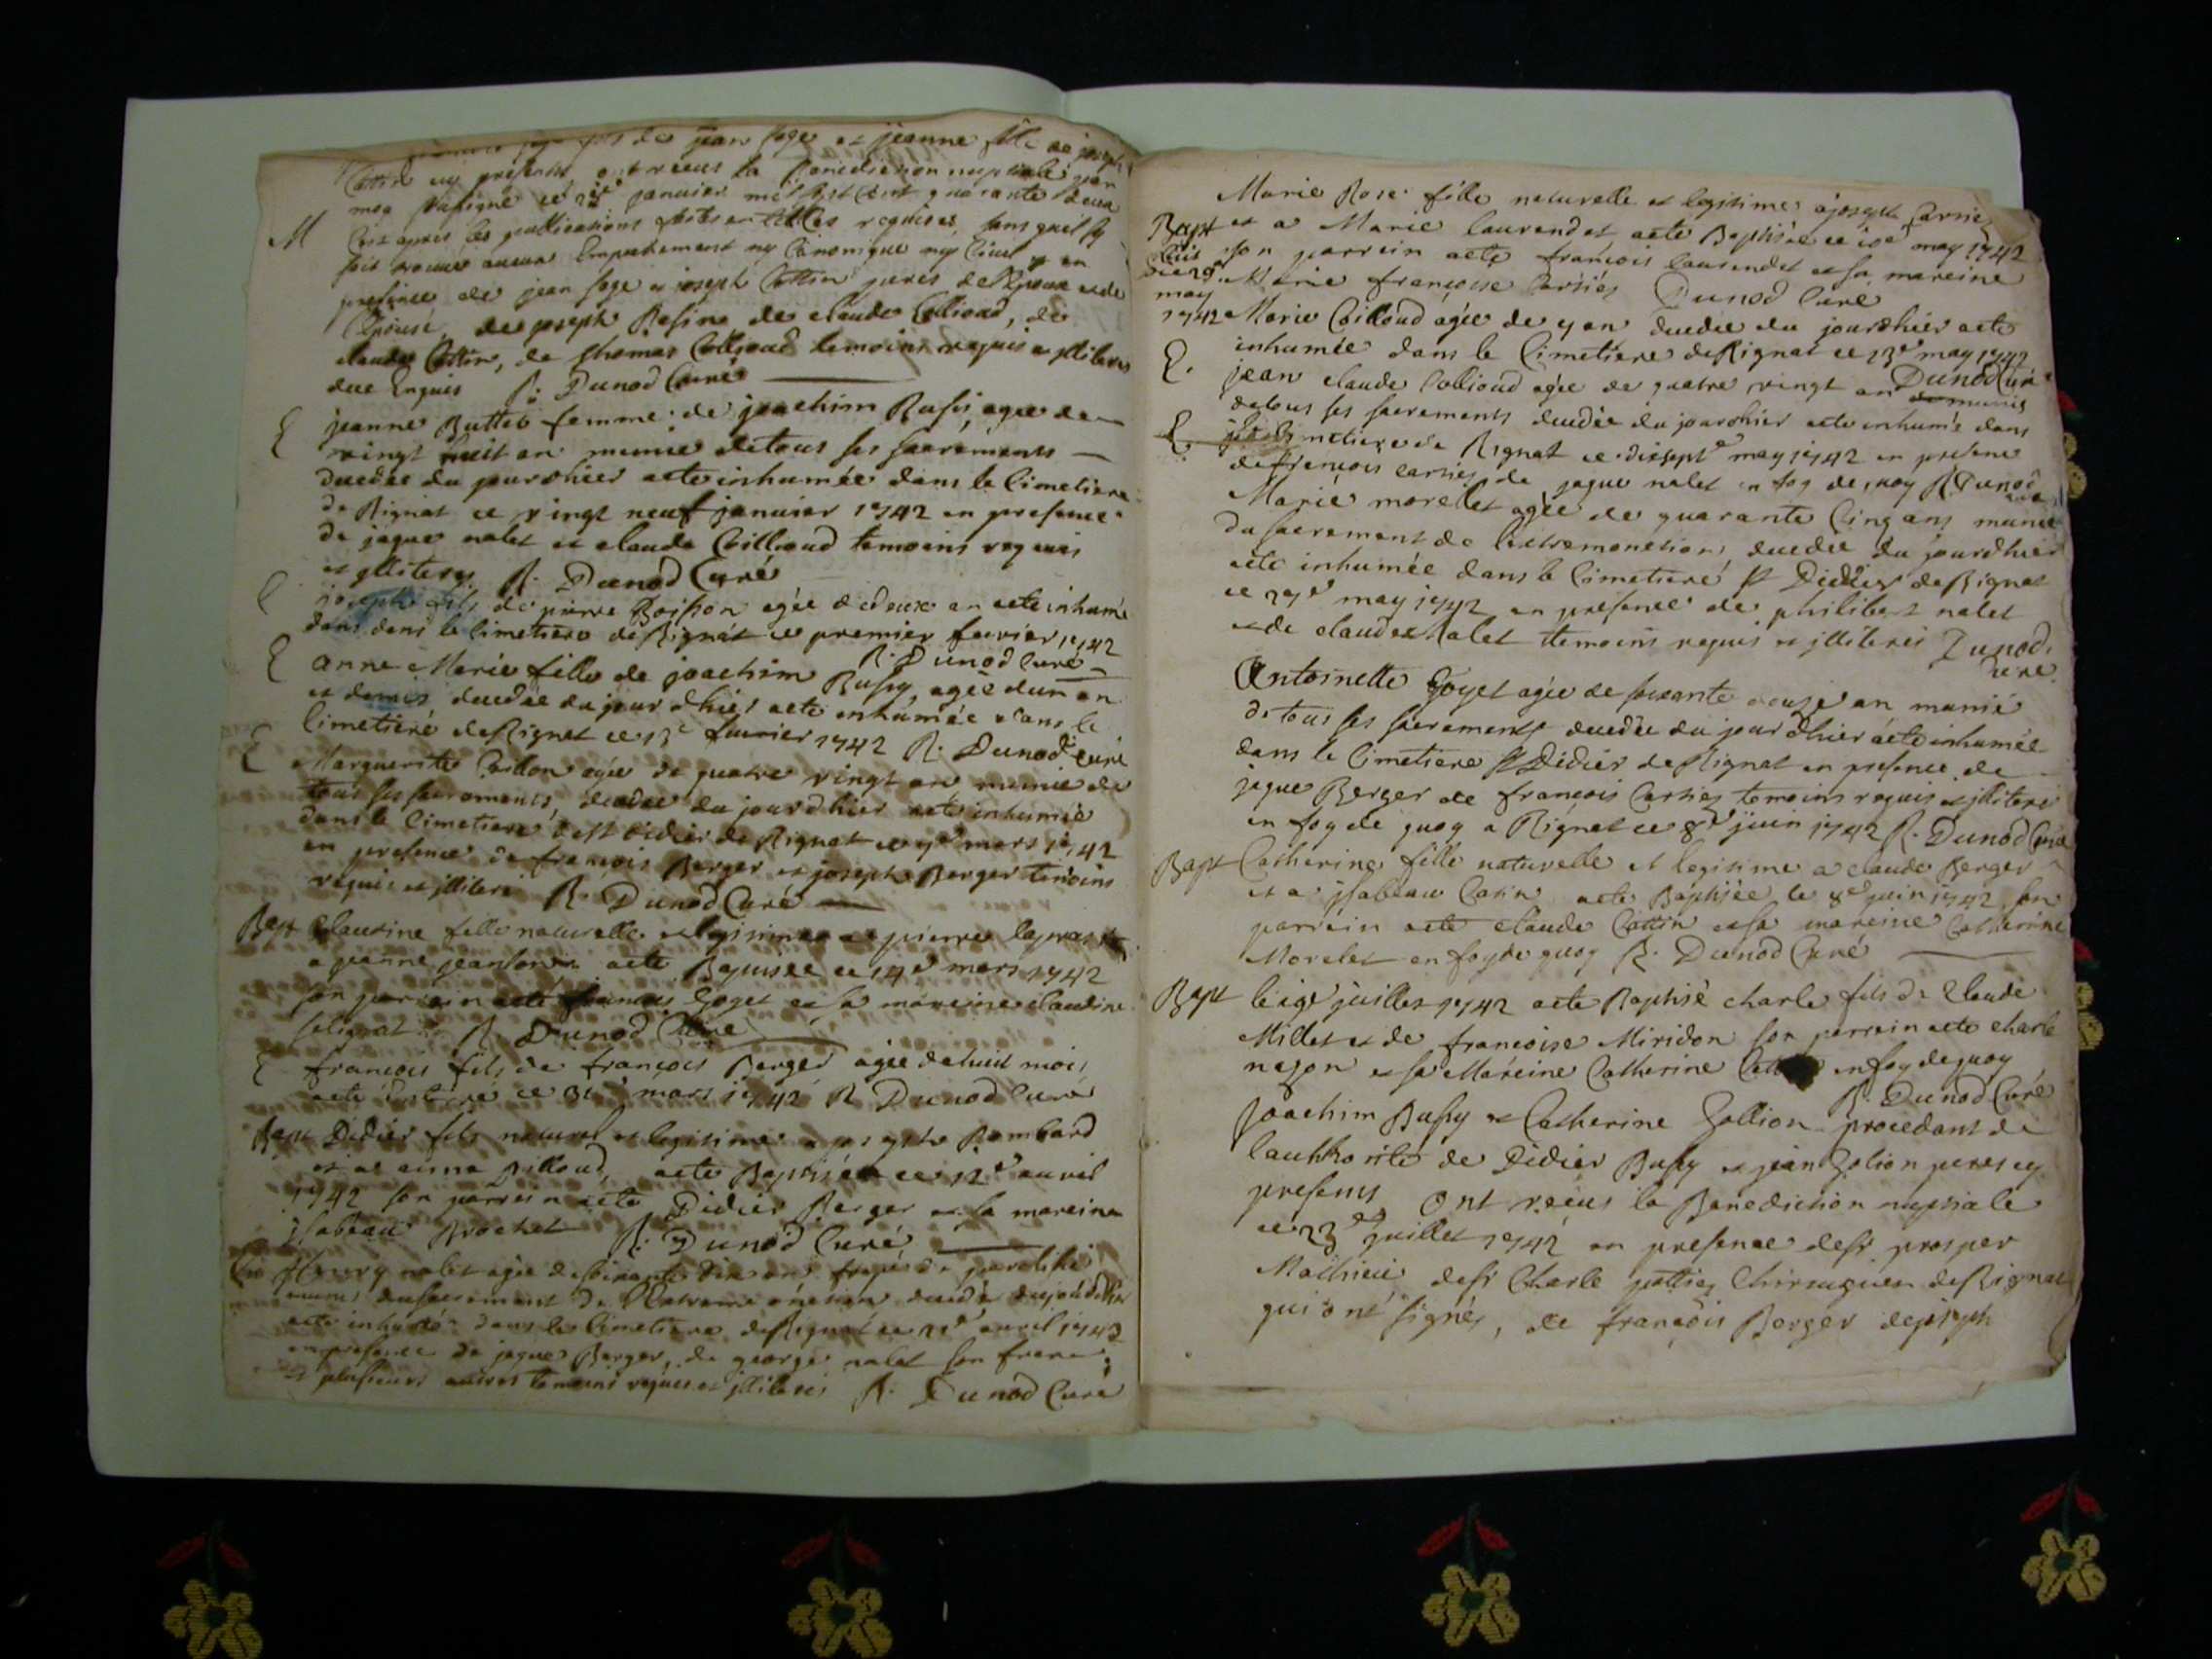 fils de jean foge et jeanne fille de joseph
Cattin icy presents, ont reçus la Benediction nuptiale par
moy soussigné ce janvier mil sept Cent quarante deux
M
Cois apres les publications faites et telles requises, sans quil sy
soit trouvé aucun Empechement ny Canonique ny Civil en
presence de jean foge et joseph Cattin peres de lEpoux et de
lEpouse, de joseph Rafine de claude Collioud, de
claude Cattin, de thomas Collioud temoins requis et jlliteres
R. Dunod Curé
E jeanne Buttet femme de joachim Bussy, agée de
vingt huit an munie de tous ses sacrements
decedée du jourdhier aete inhumée dans le Cimetiere
de Rignat ce vingt neuf janvier 1742 en presence
de jaque nalet et claude Coillioud temoins requis
et jlliteres R. Dunod Curé
E joseph fils de pierre Boisson agée de deux an aete inhumé
dans dans le Cimetiere de Rignat ce premier fevrier 1742
R. Dunod Curé
E anne Marie fille de joachim Bussy, agée dun an
et demis, decedée du jourdhier aete inhumée dans le
Cimetiere de Rignat ce 13e fevrier 1742 R. Dunod Curé
E Marguerite Coillon agée de quatre vingt an munie de
tous ses sacrements, decedée du jourdhier aete inhumée
dans le Cimetiere de st Didier de Rignat ce 7e mars 1742
en presence de françois Berger et joseph Berger temoins
requis et jlliteré R. Dunod Curé
Bapt Claudine fille naturelle et legitime a pierre
a jeanne aete Baptisée ce 14e mars 1742
son parrein aete françois Goyet et sa mareine claudine
R. Dunod Curé
E françois fils de françois Berger agée de huit mois
aete ce 31e mars 1742 R Dunod Curé
Bapt Didier fils naturel et legitime a joseph Bombard
et a anna Billoud, aete Baptisée ce 12e avril
1742 son parrein aete Didier Berger et sa mareine
jsabeau Brochet R. Dunod Curé
nalet agée de soixante dix an
munis du sacrement de lExtreme onction decedé du jourdhier
aete inhumé dans le Cimetiere de Rignat ce 21e avril 1742
en presence de jaque Berger, de george nalet son frere
et plusieurs autres temoins requis et jlliteres R. Dunod Curé
Marie Rose fille naturelle et legitime a joseph Carrié
Bapt et a Marie laurendet aete Baptisée ce may 1742
son parrein aete françois laurendet et sa mareine
Marie françoise Carriéz Dunod Curé
may
1742 Marie Coilloud agée de 7 an decedée du jourdhier aete
inhumée dans le Cimetiere de Rignat ce 13e may 1742
Dunod Curé
E. jean claude Collioud agée de quatre vingt an
de tous ses sacrements decedée du jourdhier aete inhumé dans
E. Cimetiere de Rignat ce dixsept may 1742 en presence
de françois Carriéz de jaque nalet en foy de quoy R. Dunod
Marie morellet agée de quarante Cinq ans munie
du sacrement de lextremonction decedée du jourdhier
aete inhumée dans le Cimetiere st Didier de Rignat
ce 27e may 1742 en presence de philibert nalet
et de claude nalet temoins requis et jlliteres Dunod
Curé
Antoinette Goyet agée de soixante douze an munie
de tous ses sacrements decedée du jourdhier aete inhumée
dans le Cimetiere st Didier de Rignat en presence de
jaque Berger de françois Carriéz temoins requis et jlliteré
en foy de quoy a Rignat ce 8e juin 1742 R. Dunod Curé
Bapt Catherine fille naturelle et legitime a claude Berger
et a jsabeau Catin aete Baptisée le 8e juin 1742 son
parrein aete claude Cattin et sa mareine Catherine
Morelet en foy de quoy R. Dunod Curé
Bapt le juillet 1742 aete Baptisé charle fils de Claude
Millet et de francoise Miridon son parrein aete charle
nezon et sa Mareine Catherine en foy de quoy
R. Dunod Curé
joachim Bussy et Catherine Gollion procedant de
lauthorité de Didier Bussy et jean Golion peres cy
presents ont reçus la Benediction nuptiale
ce 23e juillet 1742 en presence de sr prosper
Mathieu, de sr Charle pottiez Chirurgien de Rignat
qui ont signés, de françois Berger de joseph